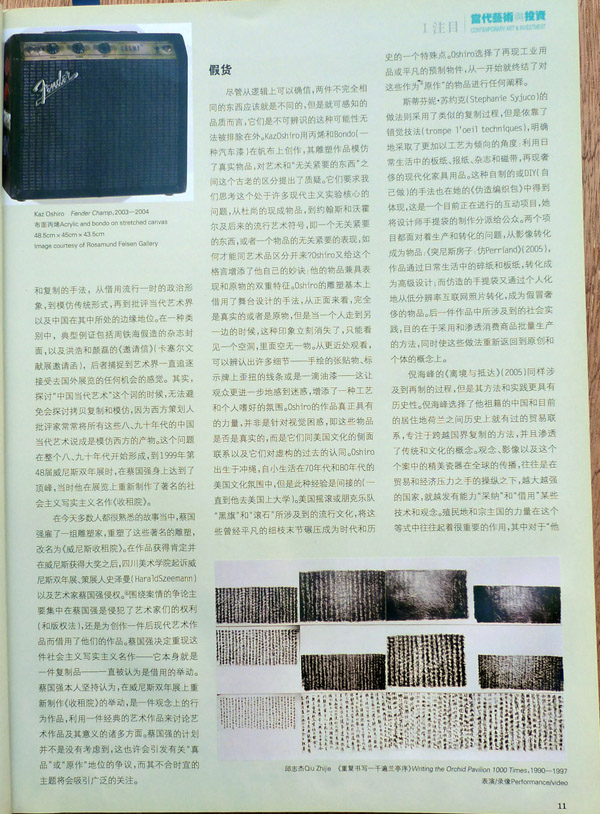 I 注目
當代藝術與投資
CONTEMPORARY ART & INVESTMENT
Fender
Kaz Oshiro Fender Champ, 2003—2004
布面丙烯Acrylic and bondo on stretched canvas
48.5cm×45cm×43.5cm
Image courtesy of Rosamund Felsen Gallery
和复制的手法，从借用流行一时的政治形
象，到模仿传统形式，再到批评当代艺术界
以及中国在其中所处的边缘地位。在一种类
别中，典型例证包括周铁海假造的杂志封
面，以及洪浩和颜磊的《邀请信》（卡塞尔文
献展邀请品），后者捕捉到艺术界一直追逐
接受去国外展览的任何机会的感觉。其实，
探讨“中国当代艺术”这个词的时候，无法避
免会探讨拷贝复制和模仿，因为西方策划人
批评家常常将所有这些八、九十年代的中国
当代艺术说成是模仿西方的产物。这个问题
在整个八、九十年代开始形成，到1999年第
48届威尼斯双年展时，在蔡国强身上达到了
顶峰，当时他在展览上重新制作了著名的社
会主义写实主义名作《收租院》。
在今天多数人都很熟悉的故事当中，蔡国
强雇了一组雕塑家，重塑了这些著名的雕塑，
改名为《威尼斯收租院》。在作品获得肯定并
在威尼斯获得大奖之后，四川美术学院起诉威
尼斯双年展、策展人史泽曼（HaraldSzeemann）
以及艺术家蔡国强侵权。围绕案情的争论主
要集中在蔡国强是侵犯了艺术家们的权利
（和版权法），还是为创作一件后现代艺术作
品而借用了他们的作品。蔡国强决定重现这
件社会主义写实主义名作——它本身就是
一件复制品——一直被认为是借用的举动。
蔡国强本人坚持认为，在威尼斯双年展上重
新制作《收租院》的举动，是一件观念上的行
为作品，利用一件经典的艺术作品来讨论艺
术作品及其意义的诸多方面。蔡国强的计划
并不是没有考虑到，这也许会引发有关“真
品”或“原作”地位的争议，而其不合时宜的
主题将会吸引广泛的关注。
假货
尽管从逻辑上可以确信，两件不完全相
同的东西应该就是不同的，但是就可感知的
品质而言，它们是不可辨识的这种可能性无
法被排除在外。KazOshiro用丙烯和Bondo（一
种汽车漆）在帆布上创作，其雕塑作品模仿
了真实物品，对艺术和“无关紧要的东西”之
间这个古老的区分提出了质疑。它们要求我
们思考这个处于许多现代主义实验核心的
问题，从杜尚的现成物品，到约翰斯和沃霍
尔及后来的流行艺术符号，即一个无关紧要
的东西，或者一个物品的无关紧要的表现，如
何才能同艺术品区分开来?Oshiro又给这个
格言增添了他自己的妙诀：他的物品兼具表
现和原物的双重特征。Oshiro的雕塑基本上
借用了舞台设计的手法，从正面来看，完全
是真实的或者是原物，但是当一个人走到另
一边的时候，这种印象立刻消失了，只能看
见一个空洞，里面空无一物。从更近处观看，
可以辨认出许多细节——手绘的张贴物、标
示牌上歪扭的线条或是一滴油漆——这让
观众更进一步地感到迷惑，增添了一种工艺
和个人嗜好的氛围。Oshiro的作品真正具有
的力量，并非是针对视觉困惑，即这些物品
是否是真实的，而是它们同美国文化的侧面
联系以及它们对虚构的过去的认同。Oshiro
出生于冲绳，自小生活在70年代和80年代的
美国文化氛围中，但是此种经验是间接的（一
直到他去美国上大学）。美国摇滚或朋克乐队
“黑旗”和“滚石”所涉及到的流行文化，将这
些曾经平凡的细枝末节碾压成为时代和历
史的一个特殊点。Oshiro选择了再现工业用
品或平凡的预制物件，从一开始就终结了对
这些作为“原作”的物品进行任何阐释。
斯蒂芬妮·苏约克(Stephanie Syjuco)的
做法则采用了类似的复制过程，但是依靠了
错觉技法（trompe l'oeil techniques），明确
地采取了更加以工艺为倾向的角度：利用日
常生活中的板纸、报纸、杂志和磁带，再现奢
侈的现代化家具用品。这种自制的或DIY（自
己做）的手法也在她的《伪造编织包》中得到
体现，这是一个目前正在进行的互动项目，她
将设计师手提袋的制作分派给公众。两个项
目都面对着生产和转化的问题，从影像转化
成为物品：《突尼斯房子：仿Perriand》（2005），
作品通过日常生活中的碎纸和板纸，转化成
为高级设计；而仿造的手提袋又通过个人化
地从低分辨率互联网照片转化，成为假冒奢
侈的物品。后一件作品中所涉及到的社会实
践，目的在于采用和渗透消费商品批量生产
的方法，同时使这些做法重新返回到原创和
个体的概念上。
倪海峰的《离境与抵达》（2005）同样涉
及到再制的过程，但是其方法和实践更具有
历史性。倪海峰选择了他祖籍的中国和目前
的居住地荷兰之间历史上就有过的贸易联
系，专注于跨越国界复制的方法，并且渗透
了传统和文化的概念。观念、影像以及这个
个案中的精美瓷器在全球的传播，往往是在
贸易和经济压力之手的操纵之下，越大越强
的国家，就越发有能力“采纳”和“借用”某些
技术和观念。殖民地和宗主国的力量在这个
等式中往往起着很重要的作用，其中对于“他
邱志杰Qiu Zhijie 《重复书写一千遍兰亭序》Writing the Orchid Pavilion 1000 Times, 1990—1997
表演/录像Performance/video
11